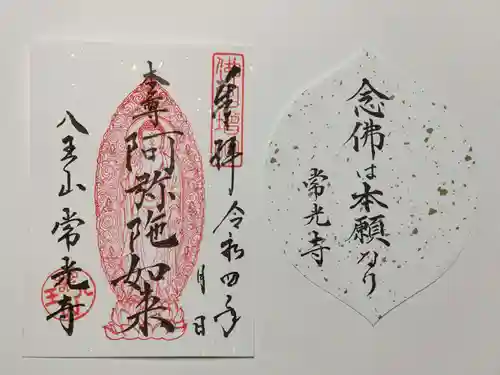 奉拝
令和四年
月 日
本尊
阿弥陀如来
八王山 常光寺
念佛は本願なり
常光寺